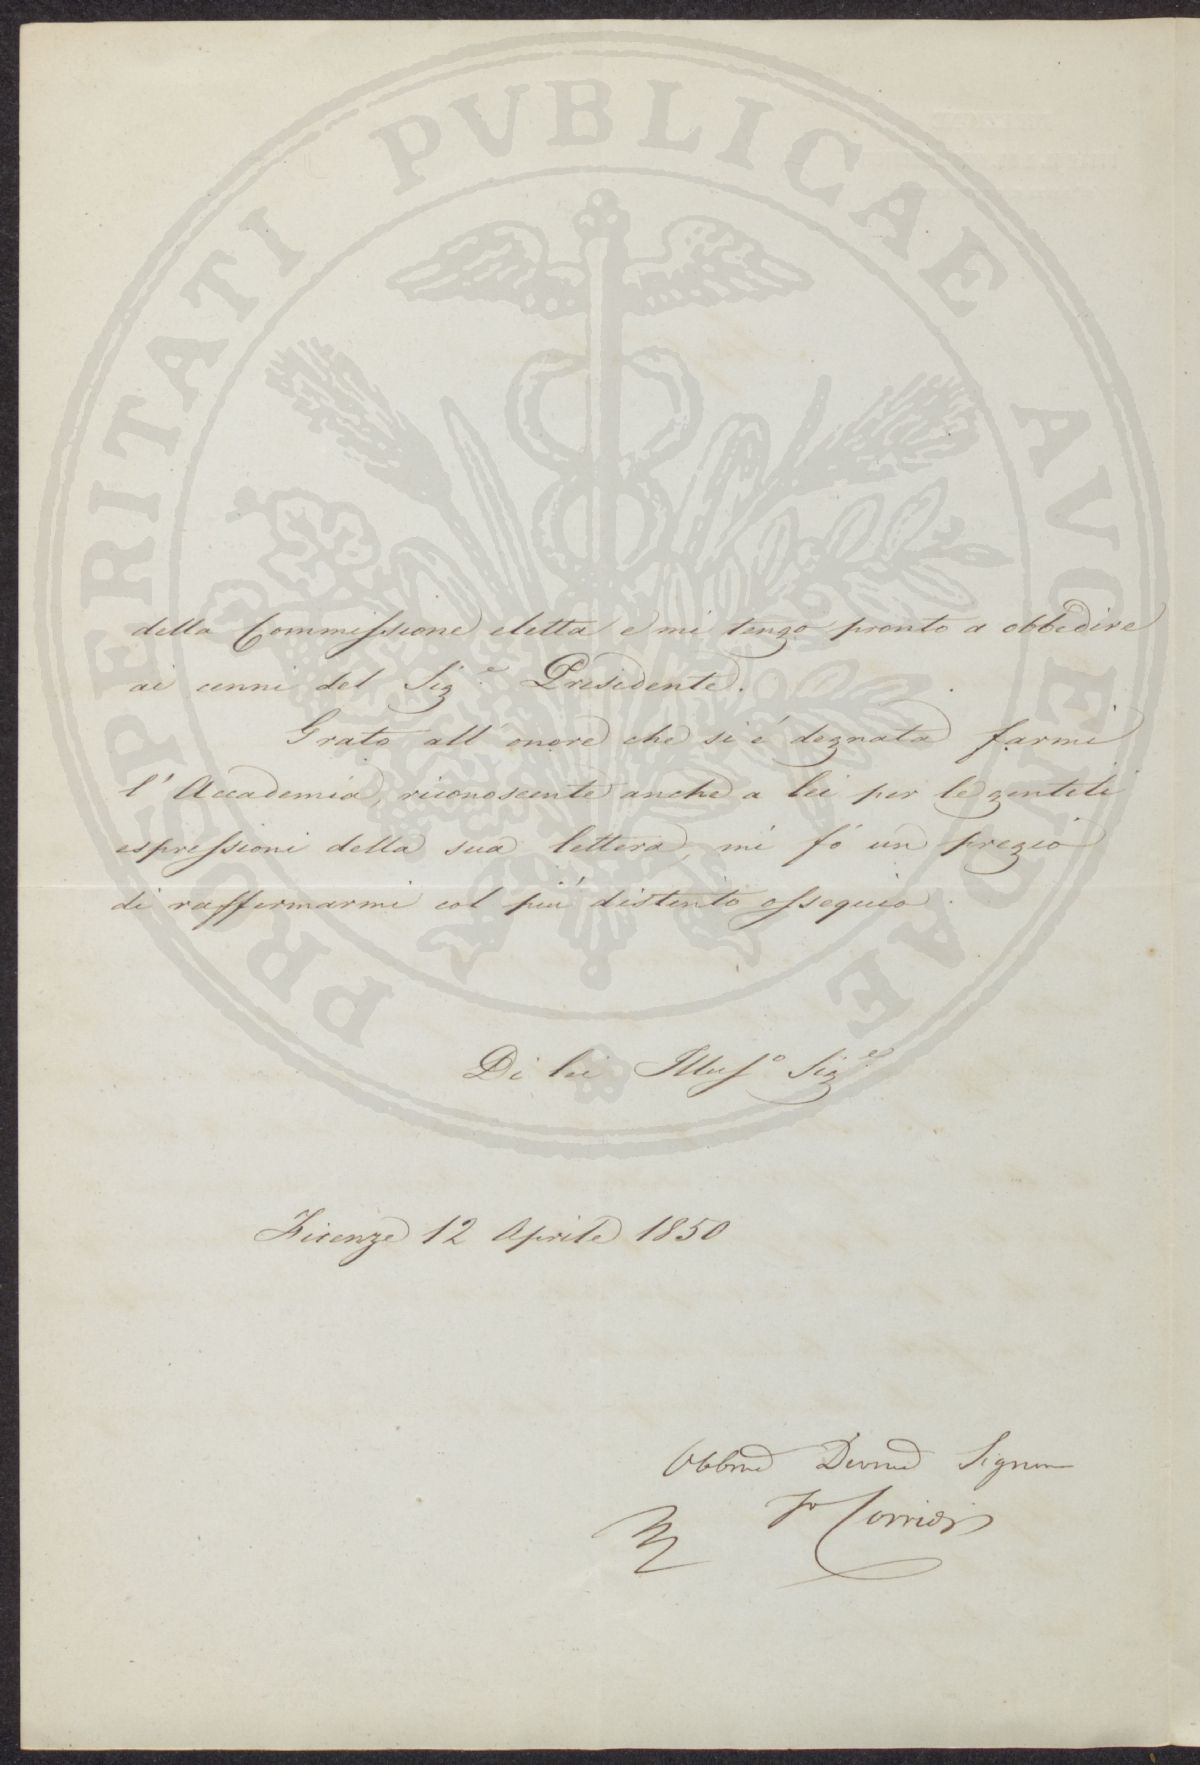 PROSPERITATI PVBLICAE AVGENDAE
della Commissione eletta e mi tengo pronto a obbedire
ai cenni del Sig.e Presidente.
Grato all'onore che si é degnata farmi
l'Accademia, riconoscente anche a lei per le gentili
espressioni della sua lettera, mi fó un pregio
di raffermarmi col piú distinto ossequio.
Di lei Illus.o Sig.e
Firenze 12 Aprile 1850
Obbmo Devmo
F Corridi